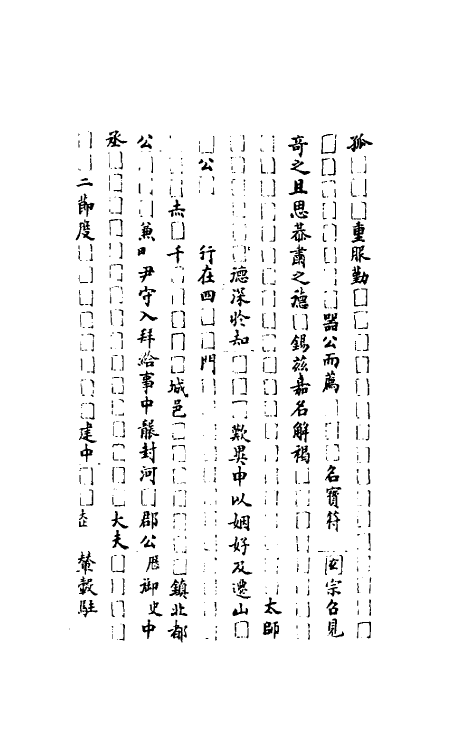 孤□□□重服勤□□□□□□□□□□□□□
□□□□□□□器公而薦□□□名寶符□玄宗召見
奇之且思恭肅之德□錫茲嘉名解褐□□□□□□
□□□□□□□□□□□□□□□□□太師
□□□□□德深於知□□□歎異申以姻好及遷山□
□公□ 行在四□□門□□□□□□□□□□
□□□杰□千□□□□□城邑□□□□□□鎮北都
公□□□兼□尹守入拜給事中襲封河□郡公歷御史中
丞□□□□□□□□□□□□□□大夫□□□
□□二節度□□□□□□□建中□□ 輦轂駐